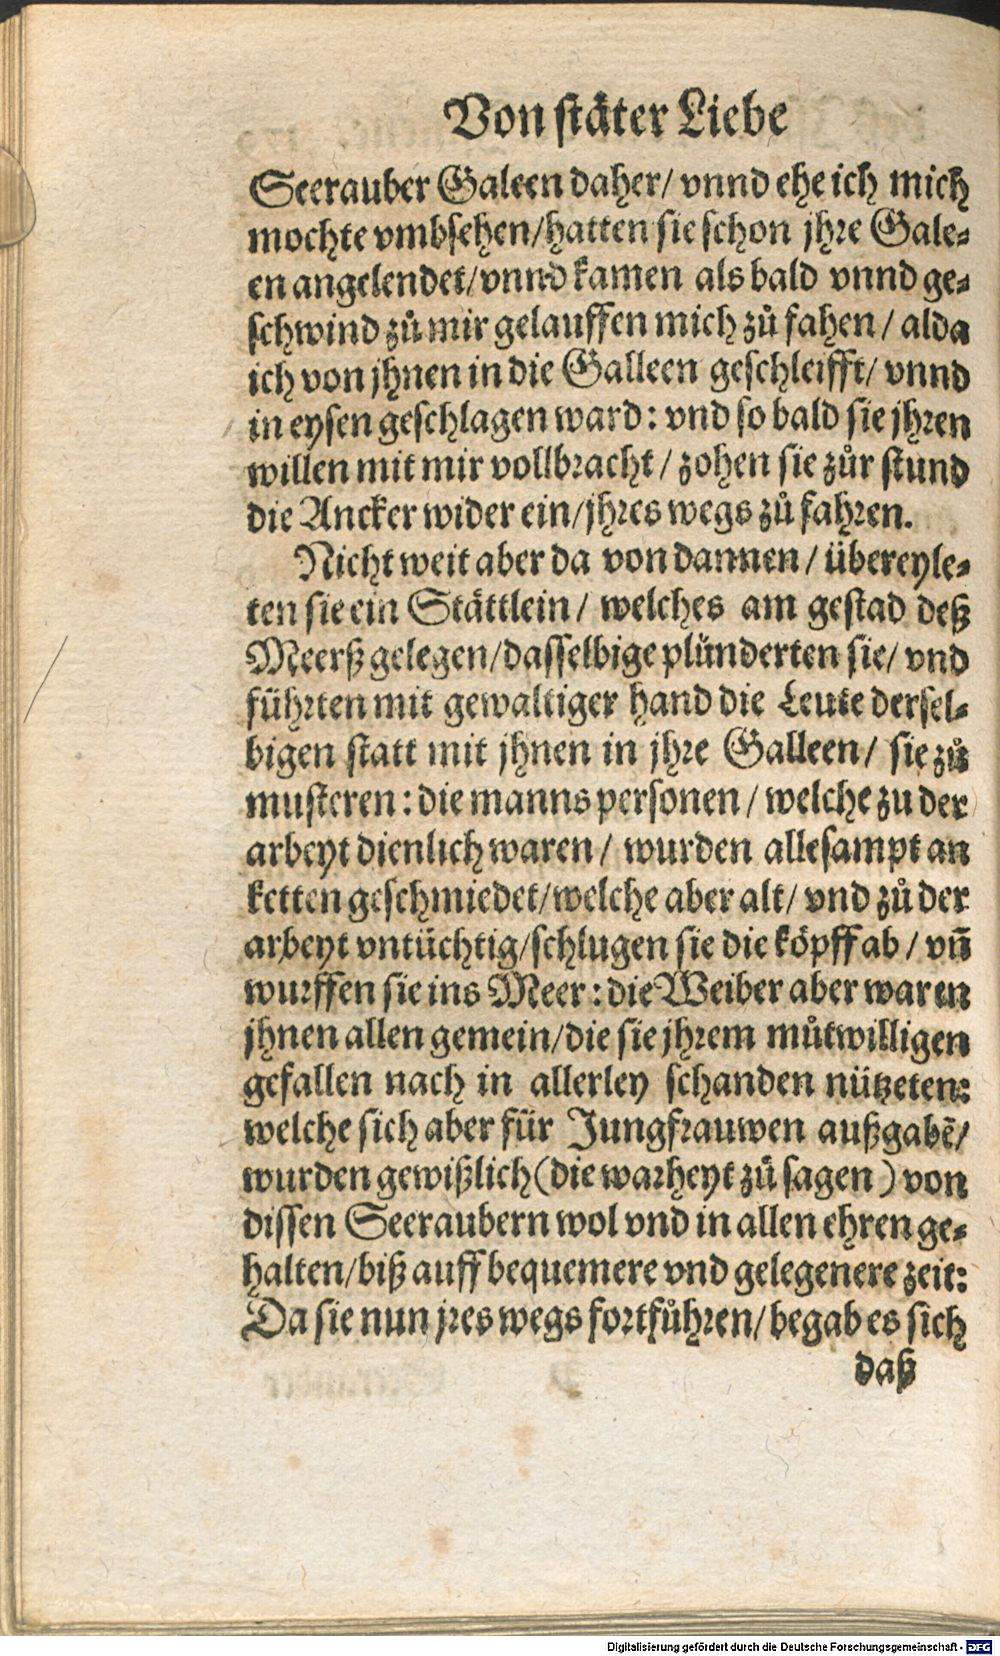 Von stäter Liebe
Seerauber Galeen daher/ vnnd ehe ich mich
mochte vmbsehen/hatten sie schon jhre Gale-
en angelendet/vnnd kamen als bald vnnd ge-
schwind zů mir gelauffen mich zů fahen / alda
ich von jhnen in die Galleen geschleifft/ vnnd
in eysen geschlagen ward: vnd so bald sie jhren
willen mit mir vollbracht / zohen sie zůr stund
die Ancker wider ein/jhres wegs zů fahren.
Nicht weit aber da von dannen / übereyle-
ten sie ein Stättlein / welches am gestad deß
Meerß gelegen/dasselbige plünderten sie/ vnd
führten mit gewaltiger hand die Leute dersel-
bigen statt mit jhnen in jhre Galleen/ sie zů
musteren: die manns personen / welche zu der
arbeyt dienlich waren / wurden allesampt an
ketten geschmiedet/welche aber alt/ vnd zů der
arbeyt vntüchtig/schlugen sie die köpff ab / vñ
wurffen sie ins Meer: die Weiber aber waren
jhnen allen gemein/die sie jhrem můtwilligen
gefallen nach in allerley schanden nützeten:
welche sich aber für Jungfrauwen außgabẽ/
wurden gewißlich (die warheyt zů sagen) von
dissen Seeraubern wol vnd in allen ehren ge-
halten/biß auff bequemere vnd gelegenere zeit:
Da sie nun jres wegs fortfůhren/begab es sich
daß
Digitalisierung gefördert durch die Deutsche Forschungsgemeinschaft - DFG